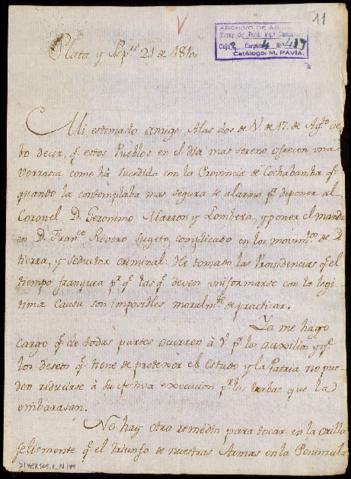 11
V
ARCHIVO DE
Catálogo: M. PAVIA.
Plata y Sepre 21 de 1810
Mi estimado amigo: A las dos de V. de 17. de Agto de-
bo decir, qe estos Pueblos en el dia mas sereno ofrecen una
borrasca como ha sucedido con la Provincia de Cochabamba qe
quando la contemplaba mas segura se alarmo pa deponer al
Coronel D. Geronimo Marron y Lombera, y poner el mando
en D. Franco Rivero sugeto complicado en los movimtos de
tierra, y seductor criminal. He tomado las Providencias qe el
tiempo franquea pr qe las qe deven uniformarse con la legi-
tima causa son imposibles moralmte de practicar.
Ya me hago
cargo qe de todas partes ocurren a V. pr los auxilios y qe
los deseos qe tiene de protexer el Estado y la Patria no pue-
den reducirse à su efectiva execucion pr las trabas que la
embarasan.
No hay otro remedio para tocar en la orilla
felizmente qe el triunfo de nuestras Armas en la Peninsula
DIVERSOS, 2, N